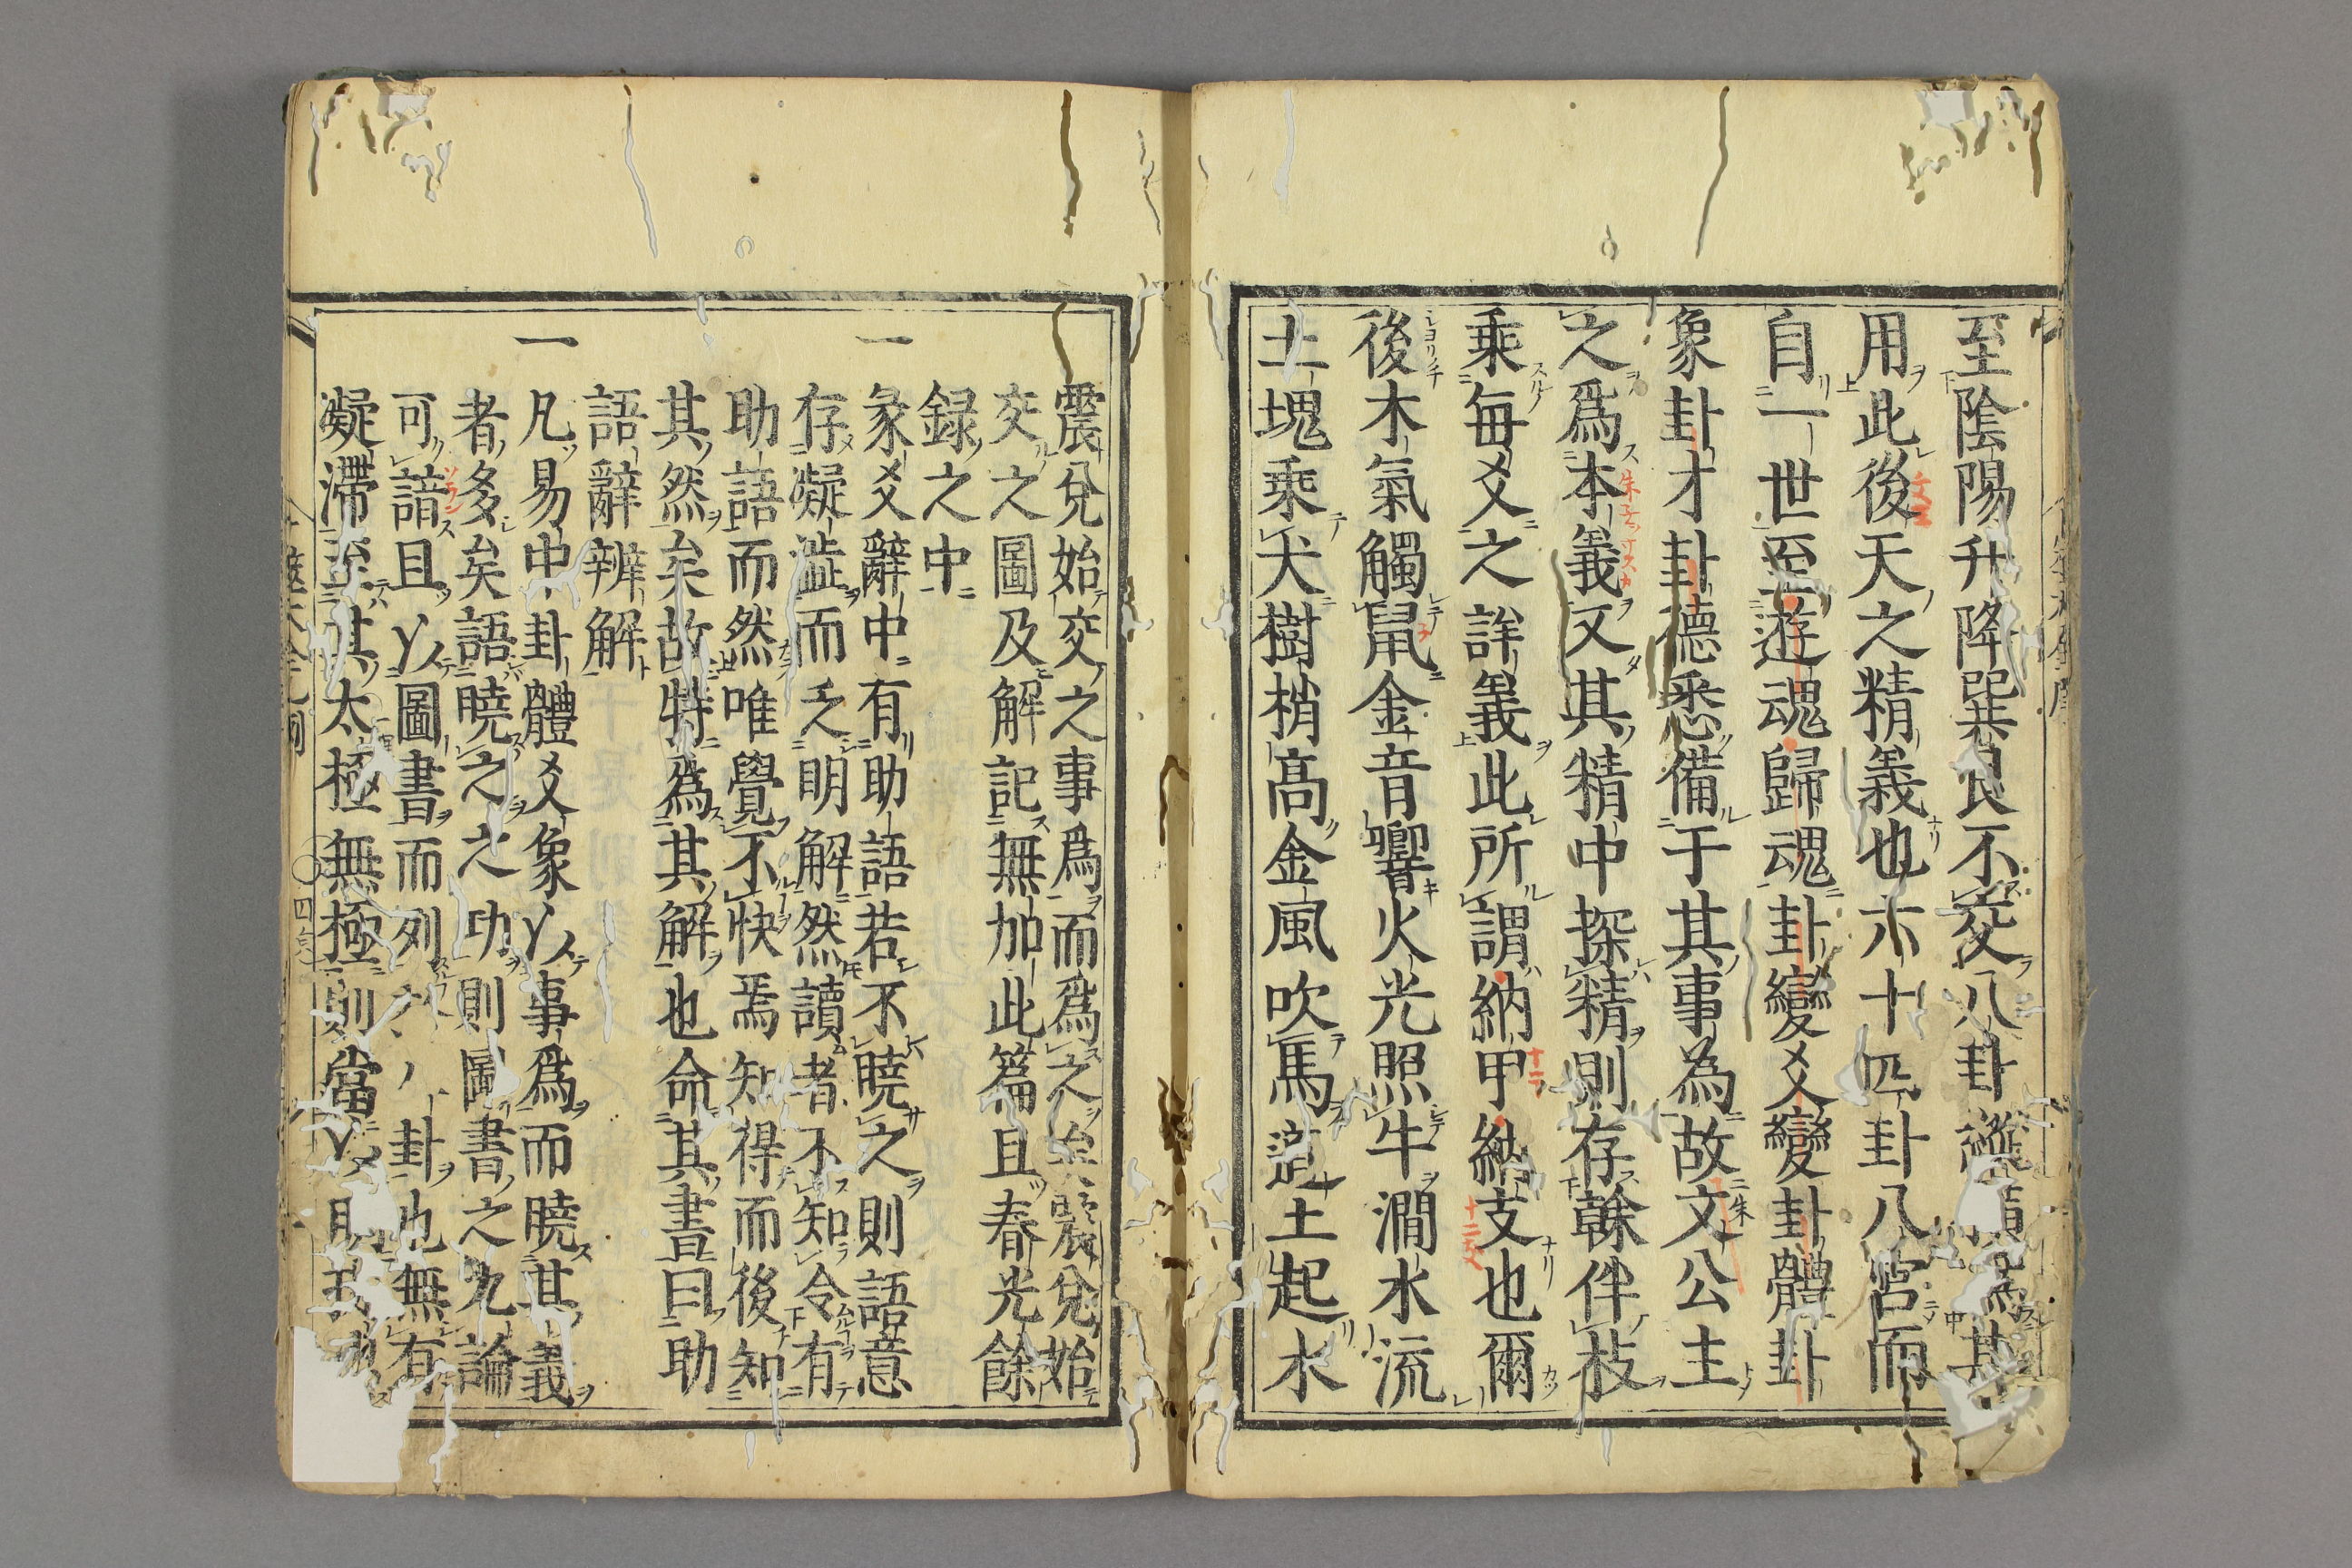 至陰陽升降巽艮不交八卦
用此後天之精義也六十四卦八宮而
自一世至遊魂歸魂卦變爻變卦體卦
象卦才卦德悉備于其事為故文公主
之爲本義又其精中探精則存榦伴枝
乘每爻之詳義此所謂納甲納支也爾
後木氣觸鼠金音響火光照牛澗水流
土塊乘犬樹梢高金風吹馬道土起水
震兌始交之事爲而爲之矣震兌始
交之圖及解記無加此篇且春光餘
録之中
一
彖爻辭中有助語若不曉之則語意
存凝澁而乏明解然讀者不知令有
助語而然唯覺不快焉知得而後知
其然矣故特爲其解也命其書曰助
語辭辨解
一
凡易中卦體爻象以事爲而曉其義
者多矣語曉之之功則圖書之九論
可諳且以圖書而列卦也無有
凝滯至其太極無極則當以